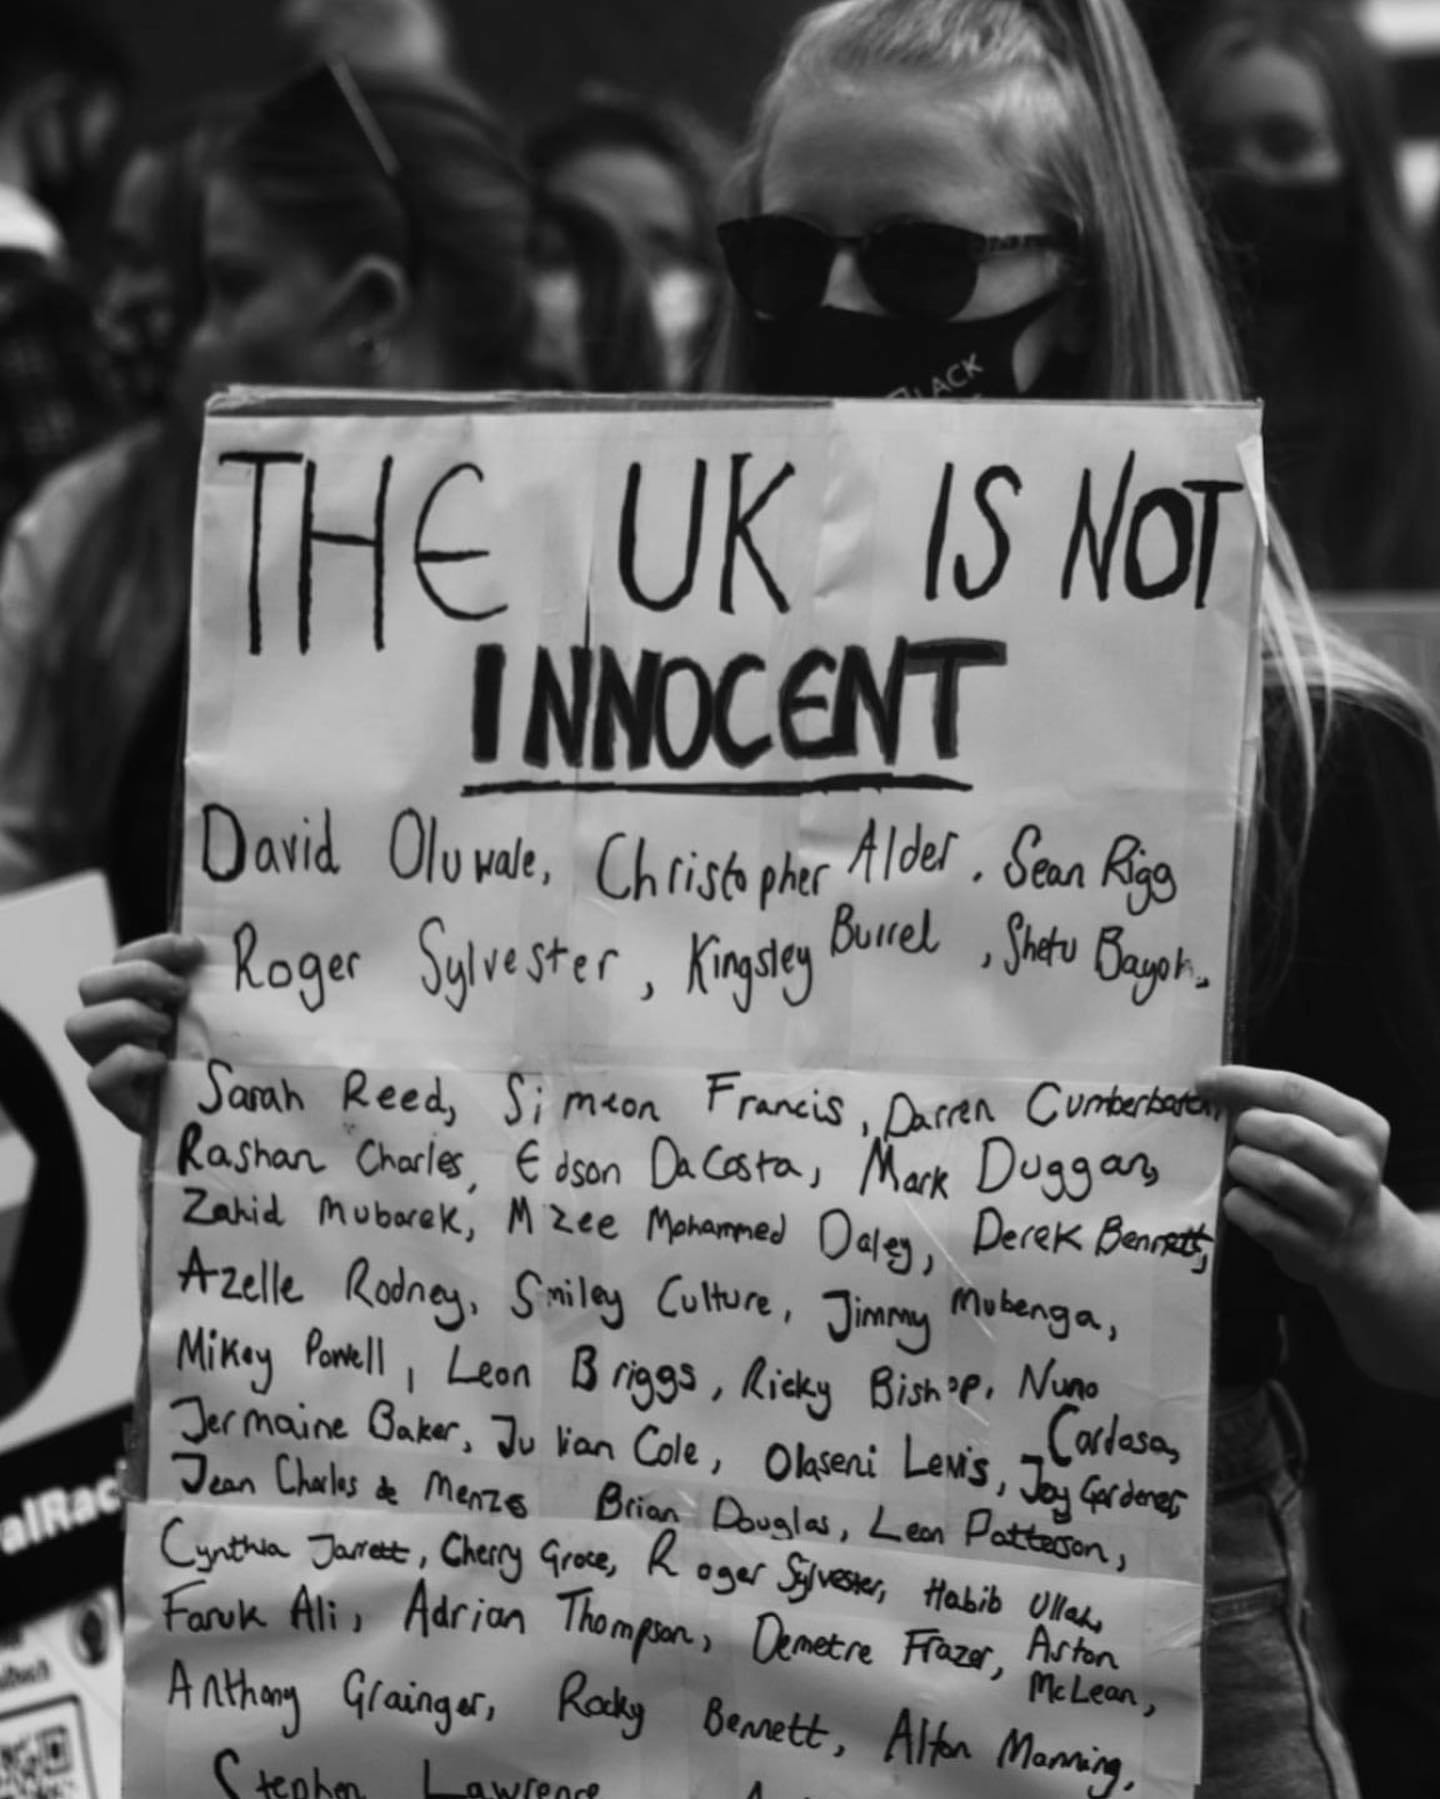 BLACK
THE UK IS NOT
INNOCENT
David Oluwale, Christopher Alder, Sean Rigg
Roger Sylvester, Kingsley Burrel, Shetu Bayoh,
Sarah Reed, Simeon Francis, Darren Cumberbatch,
Rashan Charles, Edson DaCosta, Mark Duggan,
Zahid Mubarek, Mzee Mohammed Daley, Derek Bennett,
Azelle Rodney, Smiley Culture, Jimmy Mubenga,
Mikey Powell, Leon Briggs, Ricky Bishop, Nuno
Cardasa,
Jermaine Baker, Julian Cole, Olaseni Lewis, Joy Gardener,
Jean Charles de Menzes Brian Douglas, Leon Patterson,
Cynthia Jarrett, Cherry Groce, Roger Sylvester, Habib Ullah,
Faruk Ali, Adrian Thompson, Demetre Frazer, Aston
McLean,
Anthony Grainger, Rocky Bennett, Alton Manning,
Stephen Lawrence
alRac